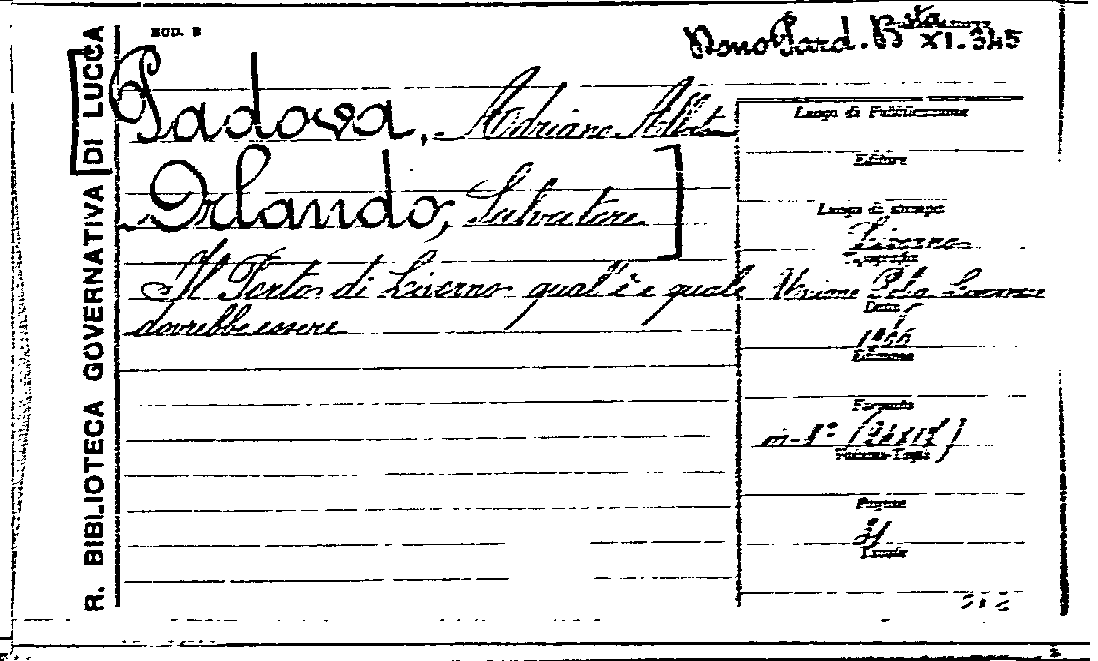 R. BIBLIOTECA GOVERNATIVA DI LUCCA
MOD. B
Dono Pard. Bsta
XI. 345
[Padova, Adriano Alberto
Orlando, Salvatore]
Il Porto di Livorno qual'è e quale
dovrebbe essere
Luogo di Pubblicazione
Editore
Luogo di stampa
Livorno
Tipografia
Unione Pola Livornese
Data
1866
Edizione
Formato
in-8º
Volume-Tomo
Pagine
31